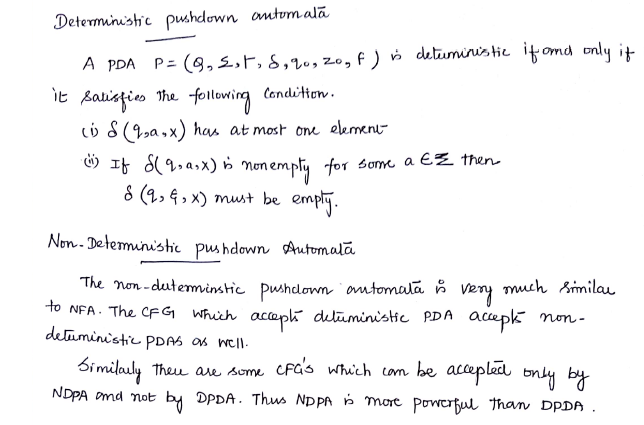 Deterministic pushdown automata
A PDA P = (Q, Σ, Γ, δ, q0, z0, F) is deterministic if and only if
it satisfies the following Condition.
(i) δ(q,a,x) has at most one element
(ii) If δ(q,a,x) is nonempty for some a ∈ Σ then
δ(q,ε,x) must be empty.
Non-Deterministic pushdown Automata
The non-deterministic pushdown automata is very much similar
to NFA. The CFG which accepts deterministic PDA accepts non-
deterministic PDAs as well.
Similarly there are some CFG's which can be accepted only by
NDPA and not by DPDA. Thus NDPA is more powerful than DPDA.